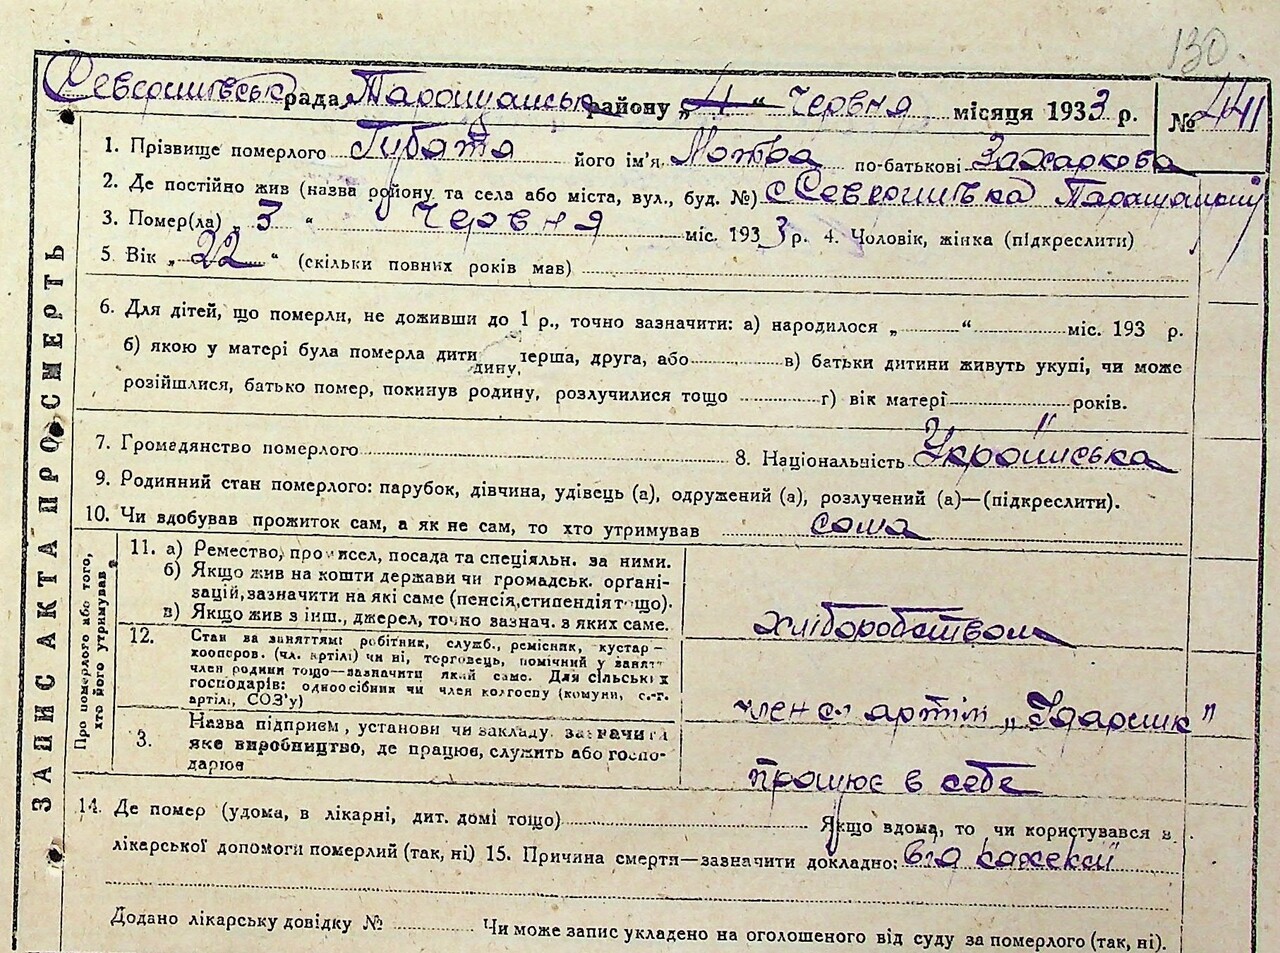 130
Северинівська рада, Таращанськ району „4“ червня місяця 1933 р. № 441
1. Прізвище померлого Губата його ім'я Мотва по-батькові Захаркова
2. Де постійно жив (назва району та села або міста, вул., буд. №) с Северинівка Таращанський
3. Помер(ла) „3“ червня міс. 1933 р. 4. Чоловік, жінка (підкреслити)
5. Вік „22“ (скільки повних років мав)
6. Для дітей, що померли, не доживши до 1 р., точно зазначити: а) народилося „ “ міс. 193 р.
б) якою у матері була померла дитидину, перша, друга, або в) батьки дитини живуть укупі, чи може
розійшлися, батько помер, покинув родину, розлучилися тощо г) вік матері років.
7. Громадянство померлого 8. Національність Українська
9. Родинний стан померлого: парубок, дівчина, удівець (а), одружений (а), розлучений (а)—(підкреслити).
10. Чи вдобував прожиток сам, а як не сам, то хто утримував сама
ЗАПИС АКТА ПРО СМЕРТЬ
Про померлого або того, хто його утримував
11. а) Ремество, промисел, посада та спеціяльн. за ними.
б) Якщо жив на кошти держави чи громадськ. органі-
зацій, зазначити на які саме (пенсія, стипендія тощо).
в) Якщо жив з інш., джерел, точно зазнач. з яких саме.
хліборобством
12. Стан за заняттям: робітник, служб., ремісник, кустар—
кооперов. (чл. артілі) чи ні, торговець, помічний у занят.
член родини тощо—зазначити який саме. Для сільських
господарів: одноосібник чи член колгоспу (комуни, с.-г.
артілі, СОЗ'у)
член с. артіли „Ударник"
3. Назва підприєм, установи чи закладу. зазначити
яке виробництво, де працює, служить або госпо-
дарює
працює в себе
14. Де помер (удома, в лікарні, дит. домі тощо) Якщо вдома, то чи користувався з
лікарської допомоги померлий (так, ні) 15. Причина смерти—зазначити докладно: від кахексії
Додано лікарську довідку № Чи може запис укладено на оголошеного від суду за померлого (так, ні).